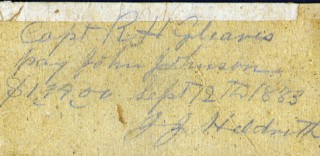 Capt R H Gleaves
pay John Johnson
$1,99,00 Sept 12th 1883
J. J. Hildreth